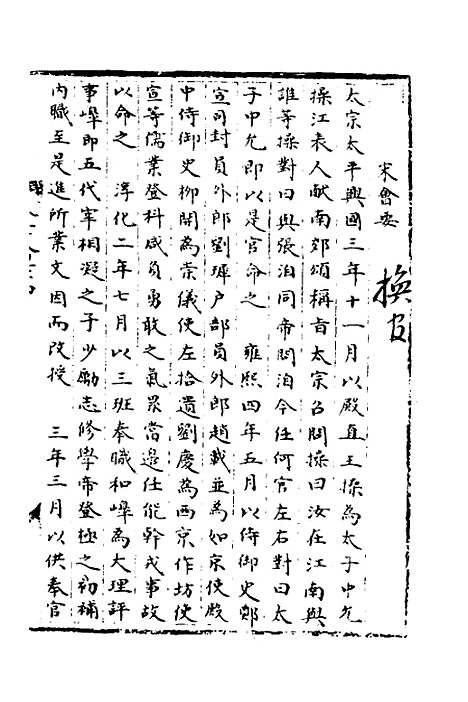 宋會要
換官
太宗太平興國三年十一月以殿直王操為太子中允
操江表人獻南郊頌稱旨太宗召問操曰汝在江南與
誰等操對曰與張洎同帝問洎今任何官左右對曰太
子中允即以是官命之 雍熙四年五月以侍御史鄭
宣司封員外郎劉墀戶部員外郎趙載並為如京使殿
中侍御史柳開為崇儀使左拾遺劉慶為西京作坊使
宣等儒業登科咸負勇敢之氣衆當邊任能幹戎事故
以命之 淳化二年七月以三班奉職和㠓為大理評
事㠓即五代宰相凝之子少勵志修學帝登極之初補
內職至是進所業文因而改授 三年三月以供奉官